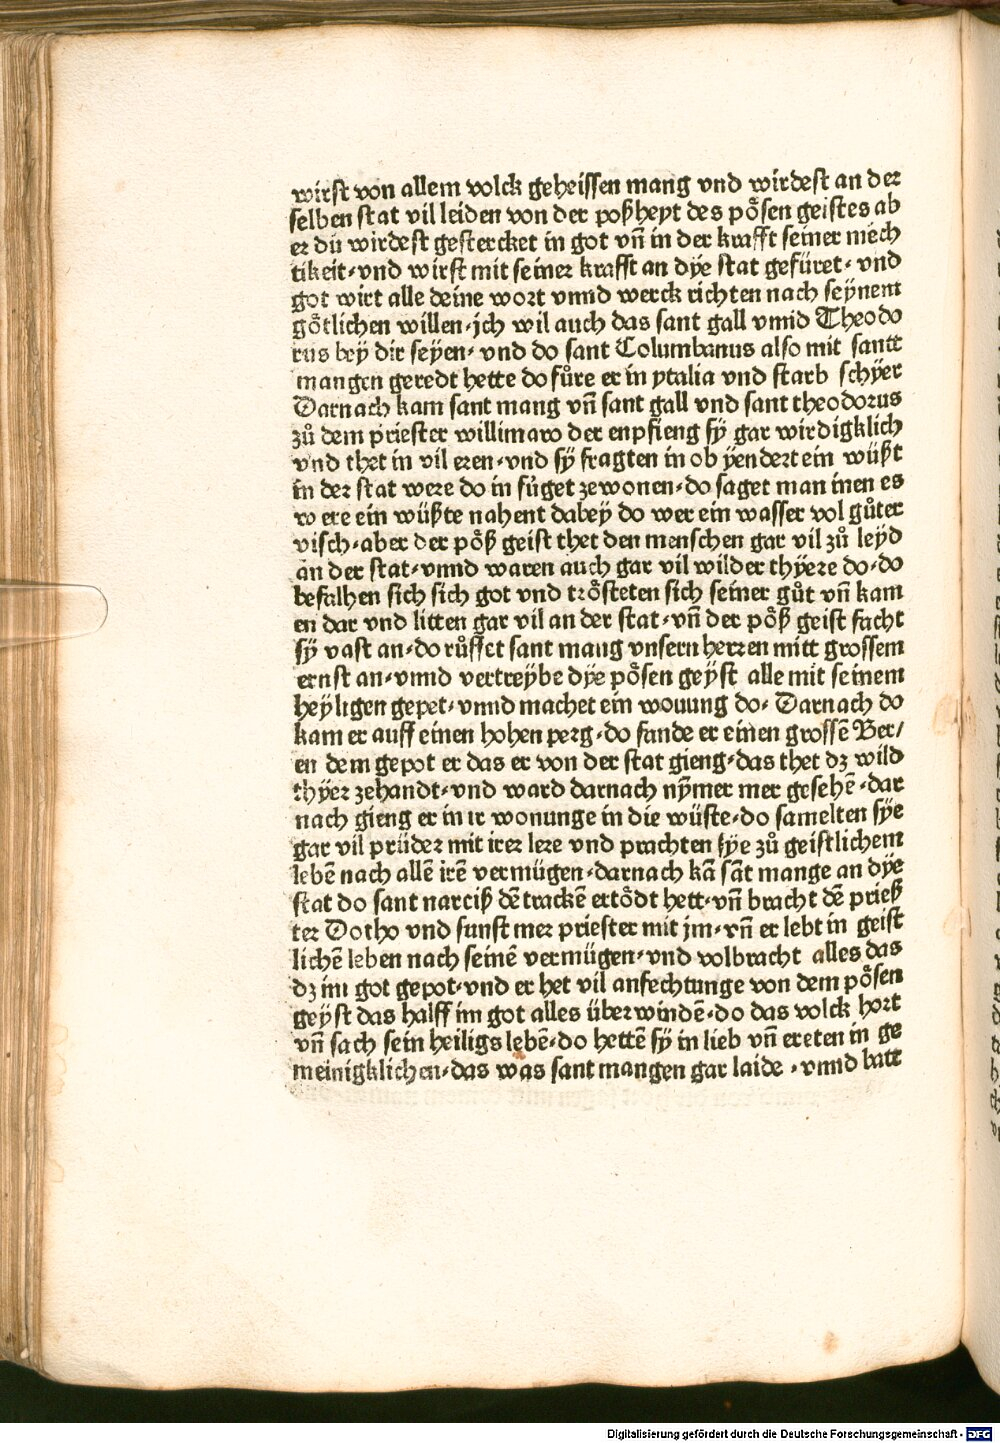 wirst von allem volck geheissen mang vnd wirdest an der
selben stat vil leiden von der poßheyt des pösen geistes ab
er du wirdest gestercket in got vñ in der krafft seiner mech
tikeit·vnd wirst mit seiner krafft an dye stat gefüret·vnd
got wirt alle deine wort vnnd werck richten nach seynem
götlichen willen·jch wil auch das sant gall vnnd Theodo
rus bey dir seyen·vnd do sant Columbanus also mit santt
mangen geredt hette do fůre er in ytalia vnd starb schyer
Darnach kam sant mang vñ sant gall vnd sant theodorus
zů dem priester willimaro der enpfieng sy gar wirdigklich
vnd thet in vil eren·vnd sy fragten in ob yendert ein wüßt
in der stat were do in fůget zewonen·do saget man inen es
were ein wüßte nahent dabey do wer ein wasser vol gůter
visch·aber der pöß geist thet den menschen gar vil zů leyd
an der stat·vnnd waren auch gar vil wilder thyere do·do
befalhen sich sich got vnd trösteten sich seiner gůt vñ kam
en dar vnd litten gar vil an der stat·vñ der pöß geist facht
sy vast an·do růffet sant mang vnsern herren mitt grossem
ernst an·vnnd vertreybe dye pösen geyst alle mit seinem
heyligen gepet·vnnd machet ein wouung do· Darnach do
kam er auff einen hohen perg·do fande er einen grossẽ Ber/
en dem gepot er das er von der stat gieng·das thet dz wild
thyer zehandt·vnd ward darnach nymer mer gesehẽ·dar
nach gieng er in ir wonunge in die wüste·do samelten sye
gar vil prüder mit irer lere vnd prachten sye zů geistlichem
lebẽ nach allẽ irẽ vermügen·darnach kã sãt mange an dye
stat do sant narciß dẽ trackẽ ertödt hett·vñ bracht dẽ prieß
ter Dotho vnd sunst mer priester mit jm·vñ er lebt in geist
lichẽ leben nach seinẽ vermügen·vnd volbracht alles das
dz im got gepot·vnd er het vil anfechtunge von dem pösen
geyst das halff im got alles überwindẽ·do das volck hort
vñ sach sein heiligs lebẽ·do hettẽ sy in lieb vñ ereten in ge
meinigklichen·das was sant mangen gar laide·vnnd batt
Digitalisierung gefördert durch die Deutsche Forschungsgemeinschaft - DFG